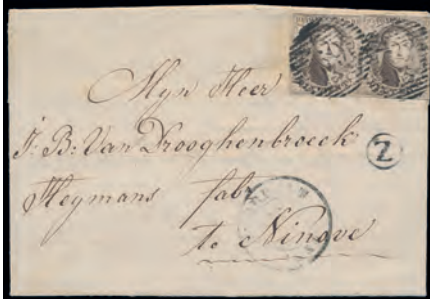 Myn Heer
J: B: Van Drooghenbroeck
Z
Heymans fabr
te Ninove